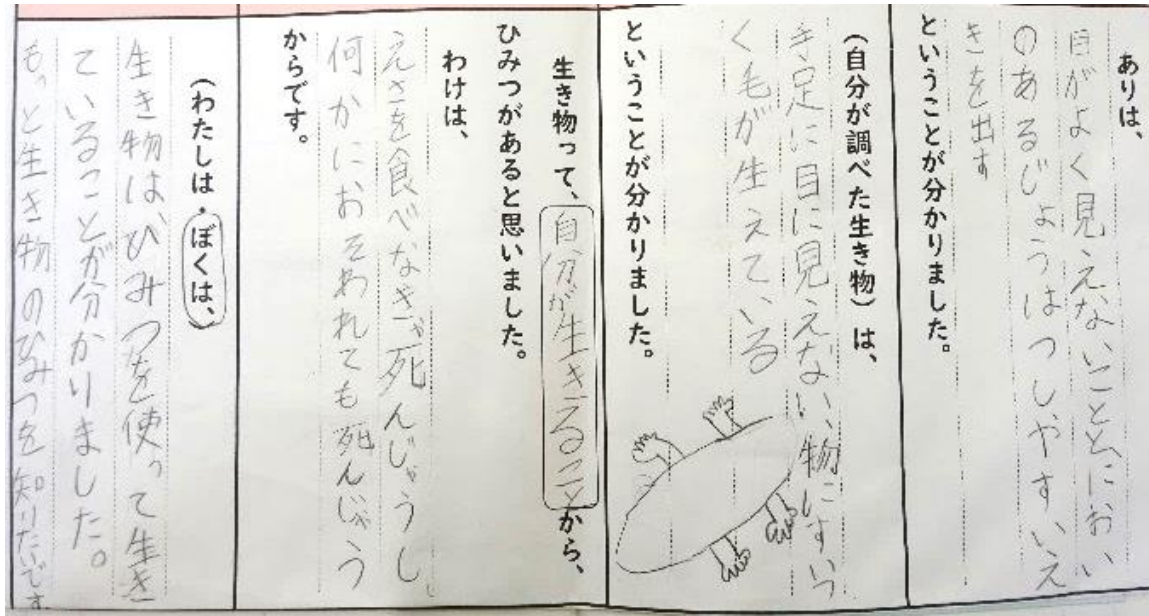 ありは、
目がよく見えないこととにおい
のあるじょうはつしやすいえ
きを出す
ということが分かりました。
(自分が調べた生き物)は、
手足に目に見えない物こすいつ
く毛が生えている
ということが分かりました。
生き物って、自分が生きることから、
ひみつがあると思いました。
わけは、
えさを食べなきゃ死んじゃうし
何かにおそわれても死んじゃう
からです。
(わたしは・ぼくは、)
生き物はひみつを使って生き
ていることが分かりました。
もっと生き物のひみつを知りたいです